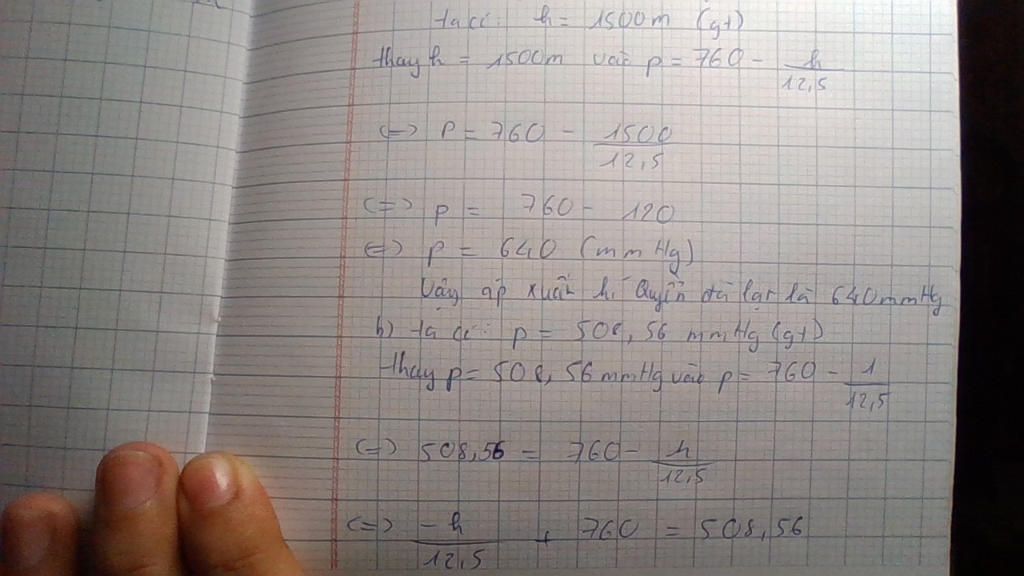 ta có: h = 1500m (gt)
thay h = 1500m vào p = 760 - h/12,5
<=> P = 760 - 1500/12,5
<=> p = 760 - 120
<=> p = 640 (mmHg)
Vậy áp xuất khí Quyển đà lạt là 640mmHg
b) ta có: p = 508,56 mmHg (gt)
thay p = 508,56 mmHg vào p = 760 - 1/12,5
<=> 508,56 = 760 - h/12,5
<=> -h/12,5 + 760 = 508,56